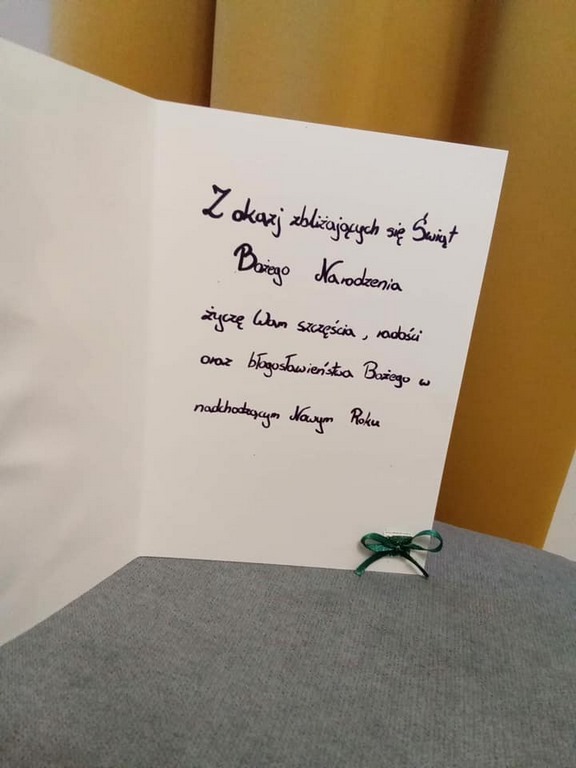 Z okazj zbliżających się Świąt
Bożego Narodzenia
życzę Wam szczęścia, radości
oraz błogosławieństwa Bożego w
nadchodzącym Nowym Roku